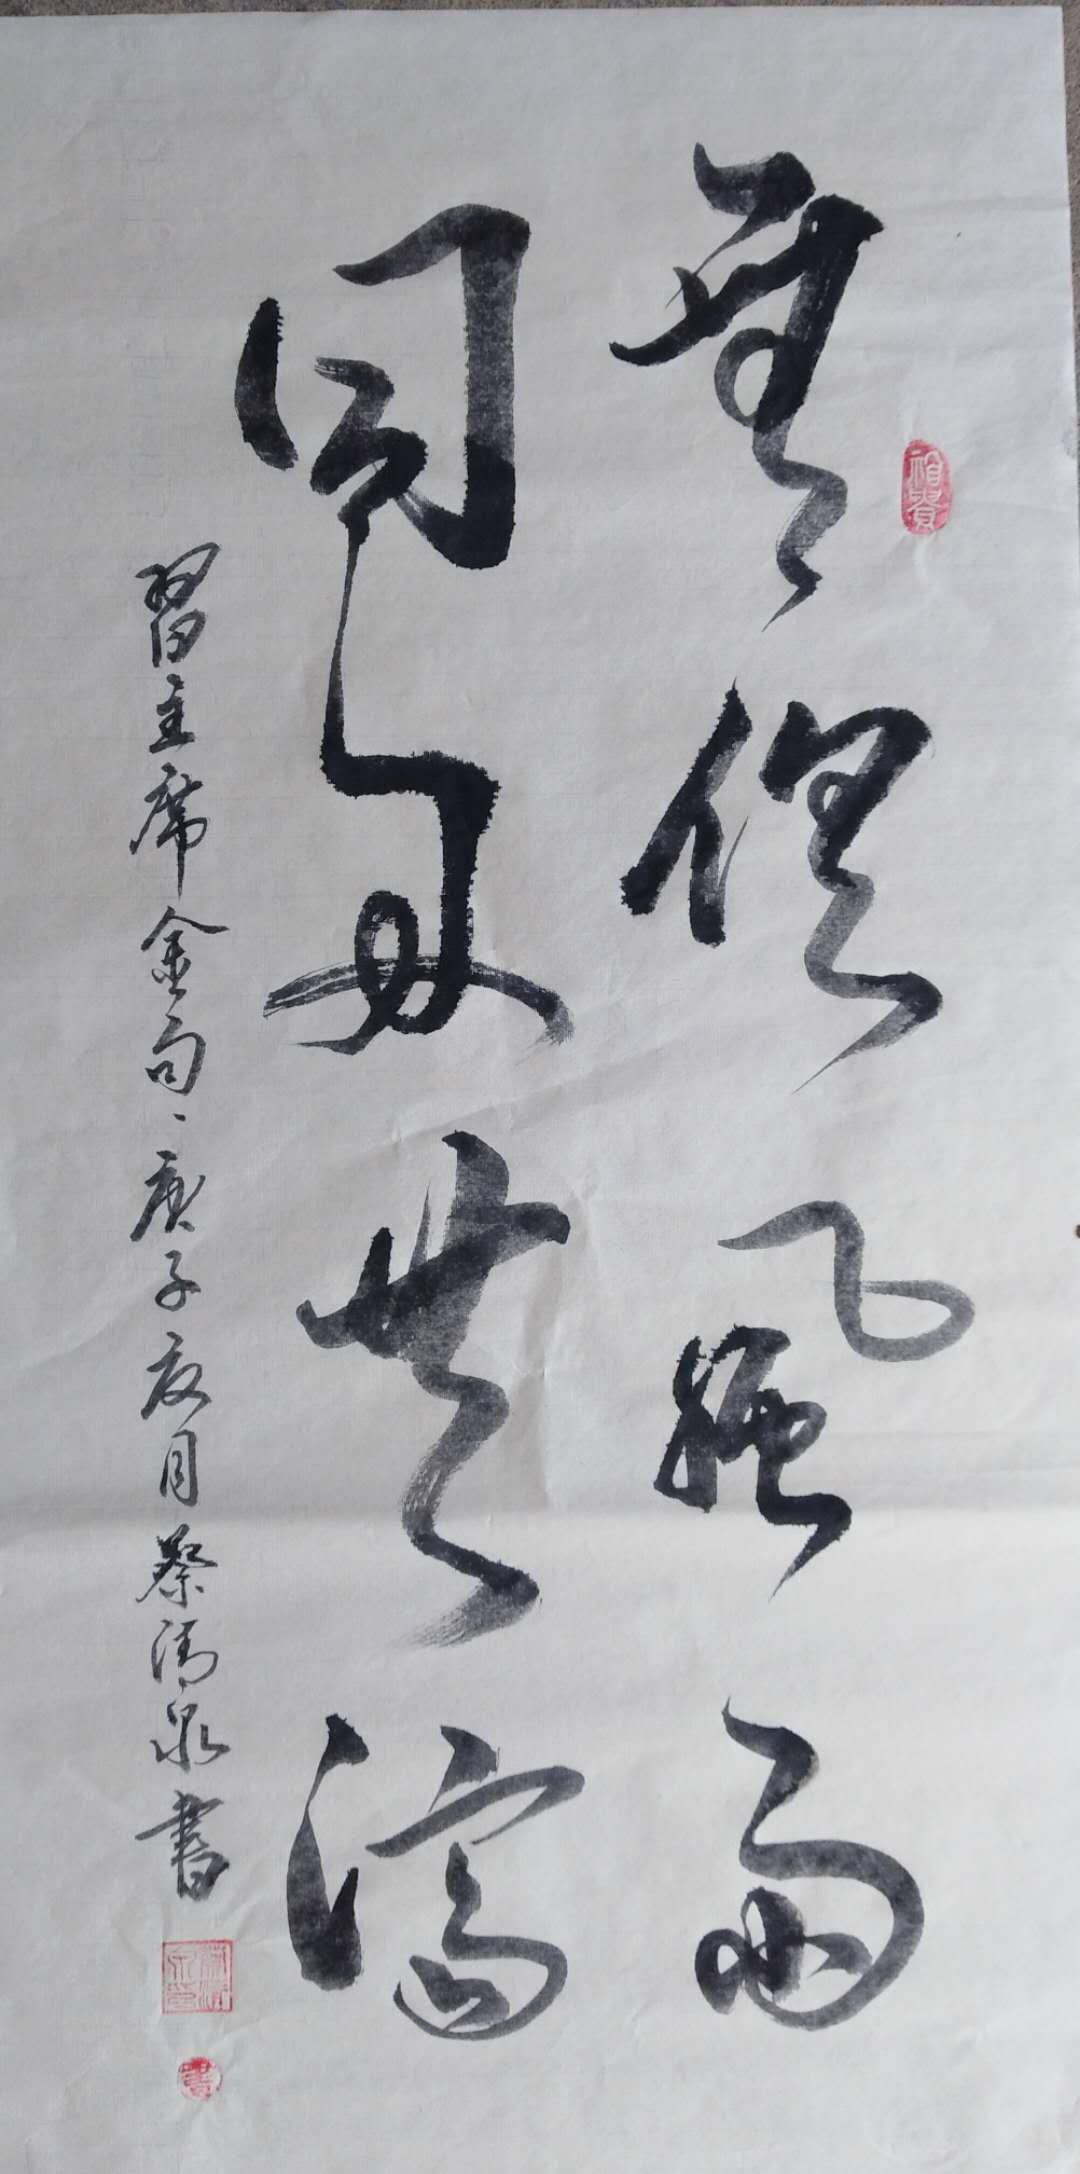 無俚風雨
同舟共濟
習主席金句、庚子夜月蔡清泉書